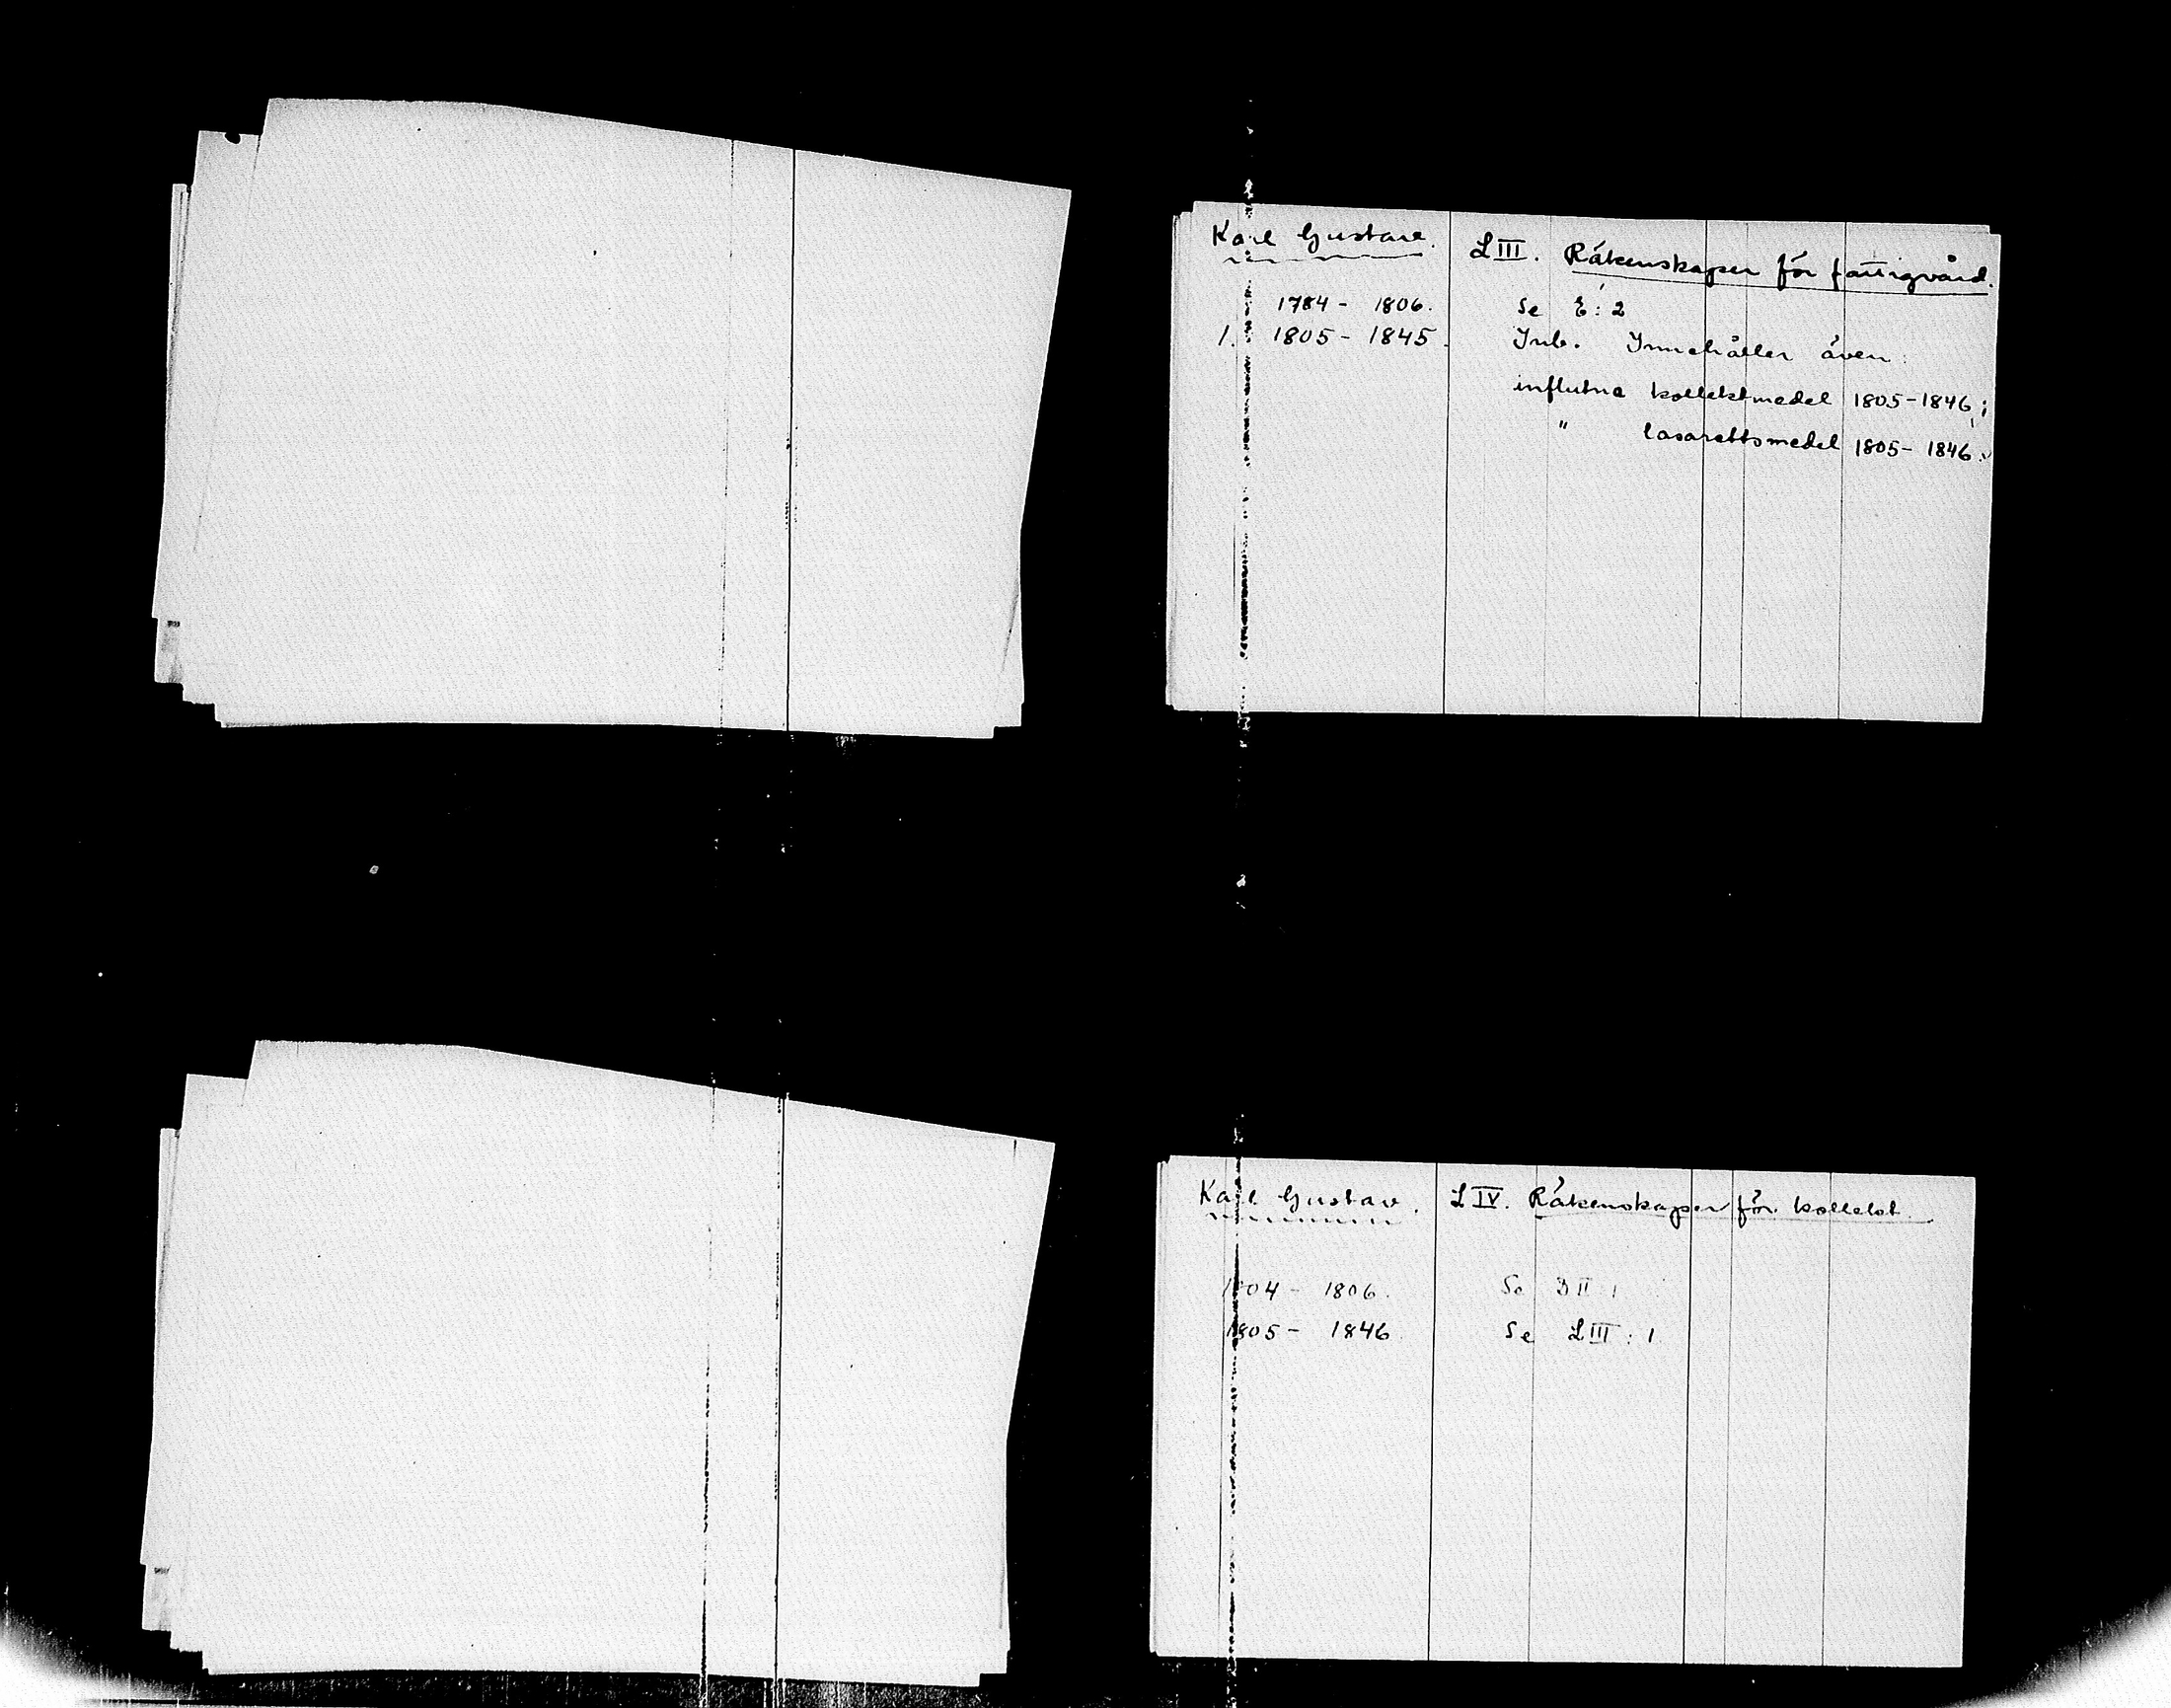 Karl Gustav. L III. Räkenskaper för fattigvård.
1784 - 1806. Se E:2
1. 1805 - 1845. Inb. Innehåller även:
influtna kollektmedel 1805-1846;
" lasarettsmedel 1805-1846.
Karl Gustav. L IV. Räkenskaper för kollekt.
1804 - 1806. Se II:1
1805 - 1846 Se L III:1